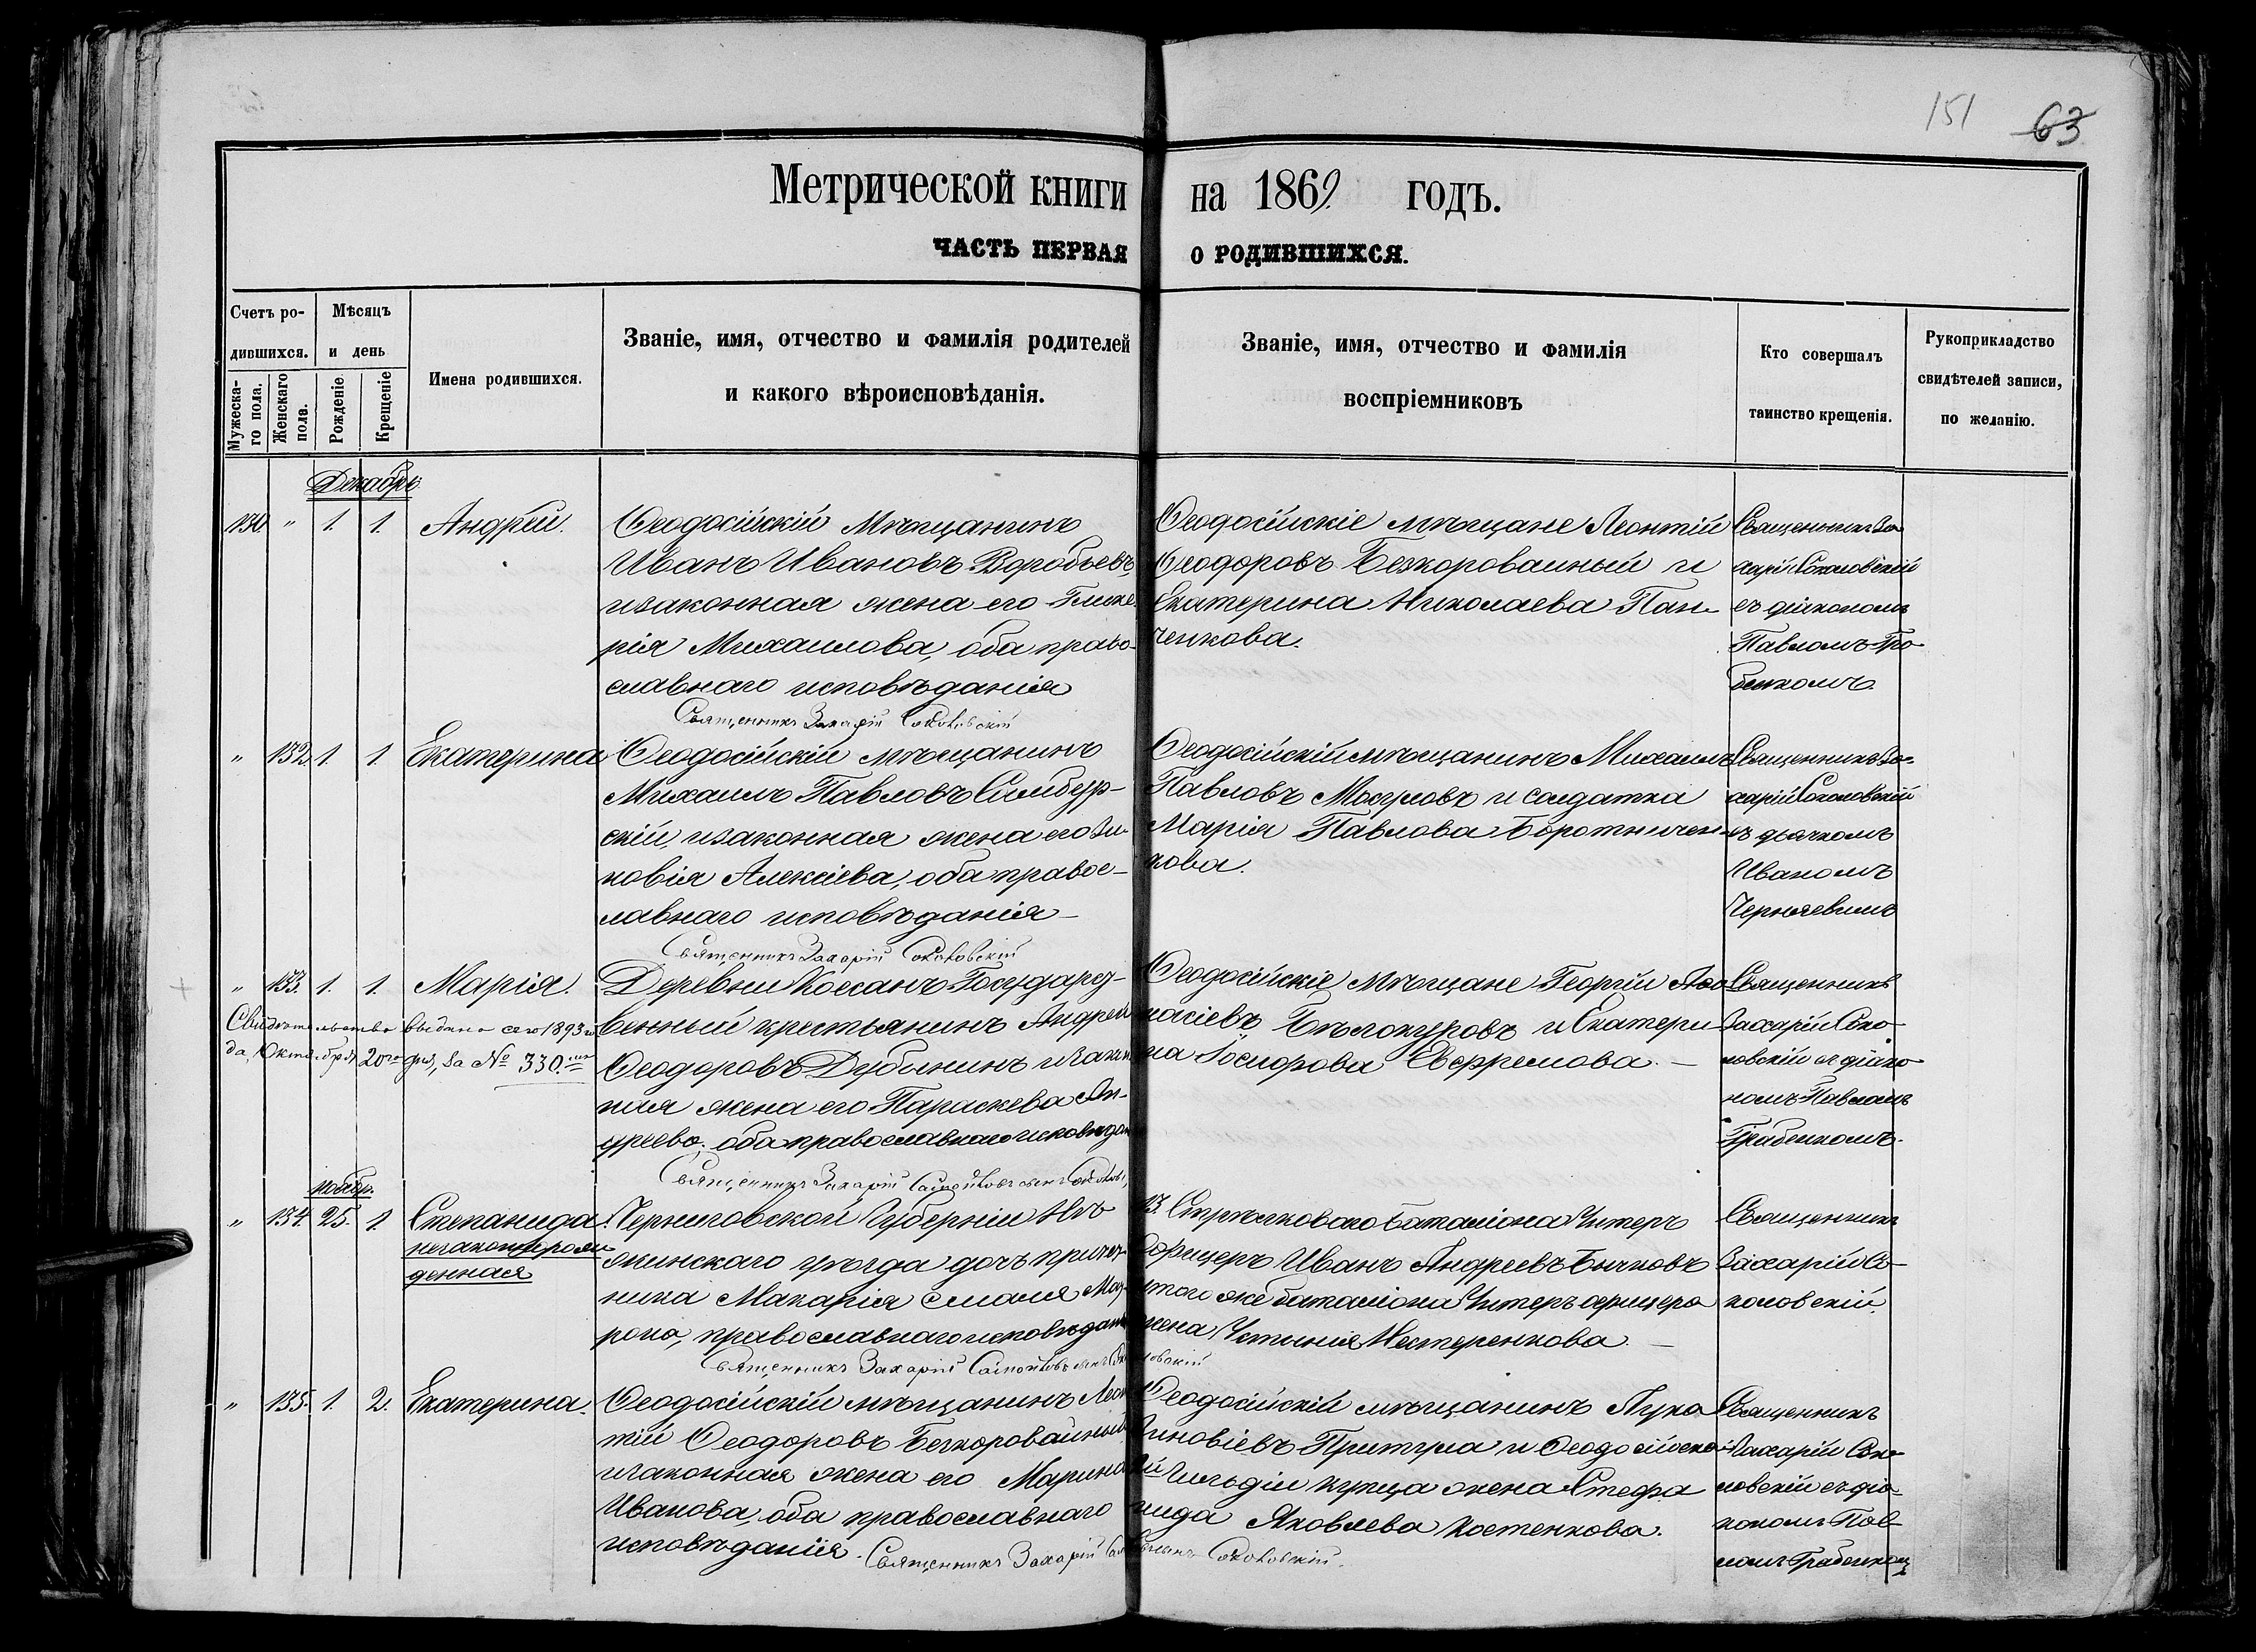 151 63
Метрической книги на 1869. годъ.
ЧАСТЬ ПЕРВАЯ О РОДИВШИХСЯ.
Счетъ ро-
дившихся.
Мужеска-
го пола.
Женскаго
пола.
Мѣсяцъ
и день
Рожденіе
Крещеніе
Имена родившихся.
Званіе, имя, отчество и фамилія родителей
и какого вѣроисповѣданія.
Званіе, имя, отчество и фамилія
воспріемниковъ
Кто совершалъ
таинство крещенія.
Рукоприкладство
свидѣтелей записи,
по желанію.
Декабрь
130 " 1. 1. Андрей.
Ѳеодосійскій Мѣщанинъ
Иванъ Ивановъ Воробьевъ,
изаконная жена его Глике
рія Михаилова, оба право-
славнаго исповѣданія
Священникъ Захарій Соколовскій
Ѳеодосійскіе мѣщане Леонтій
Ѳеодоровъ Безкоровайный и
Екатерина Николаева Пан-
ченкова.
Священникъ За
харій Соколовскій
съ діакономъ
Павломъ Гра
бенкомъ.
" 132 1. 1. Екатерина
Ѳеодосійскій мѣщанинъ
Михаилъ Павловъ Симбур-
скій, изаконная жена его Зи-
новія Алексіева, оба правос-
лавнаго исповѣданія
Священникъ Захарій Соколовскій
Ѳеодосійскій мѣщанинъ Михаилъ
Павловъ и солдатка
Марія Павлова Боротничен-
кова.
Священникъ За-
харій Соколовскій
съ дьячкомъ
Иваномъ
Чернявимъ
" 133. 1. 1. Марія.
Свидѣтельство выдано сего 1893 го
да, Октября 20го дня, за № 330.
Деревни Коссанъ Государст-
венный крестьянинъ Андрей
Ѳеодоровъ Дубининъ изакон
ная жена его Параскева Ан-
дреева, оба православнаго исповѣдан
Священникъ Захарій
Ѳеодосійскіе Мѣщане Георгій Аѳа
насіевъ Бѣлокуровъ и Екатери
на Іосифова Евфремова.
Священникъ
Захарій Соко-
ловскій съ діако
номъ Павломъ
Грабенкомъ.
ноябр.
" 134. 25. 1. Степанида.
незаконнорож
денная
Черниговской Губерніи Нѣ
жинскаго уѣзда дочь причет
ника Макарія
рова, православнаго исповѣдан
Священникъ Захарій
13. Стрѣлковаго Баталіона Унтеръ
Офицеръ Иванъ Андреевъ Бычковъ
итого же баталіона Унтеръ офицера
жена Устинія Нестеренкова.
Священникъ
Захарій Со-
коловскій.
" 135. 1. 2. Екатерина.
Ѳеодосійскій мѣщанинъ Леон
тій Ѳеодоровъ Безкоровайный
изаконная жена его Марина
Иванова, оба православнаго
исповѣданія.
Священникъ Захарій Соколовскій.
Ѳеодосійскій мѣщанинъ Лука
Зиновіевъ Притула и Ѳеодосійской
й Гильдіи купца жена Стефа
нида Яковлева Костенкова.
Священникъ
Захарій Соко
ловскій съ діа-
кономъ Пав-
ломъ Грабенком